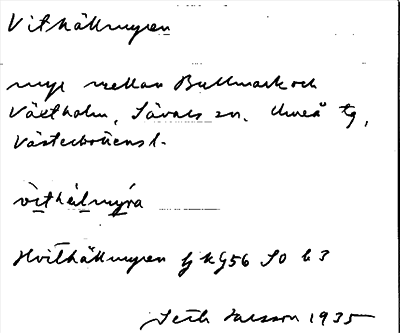 Vithällmyren
myr mellan Bullmark och
Växtholm, Sävars sn. Umeå tg,
Västerbottens l.
vithälmyra
Hvithällmyren gkG56 SO b3
Seth Larsson 1935